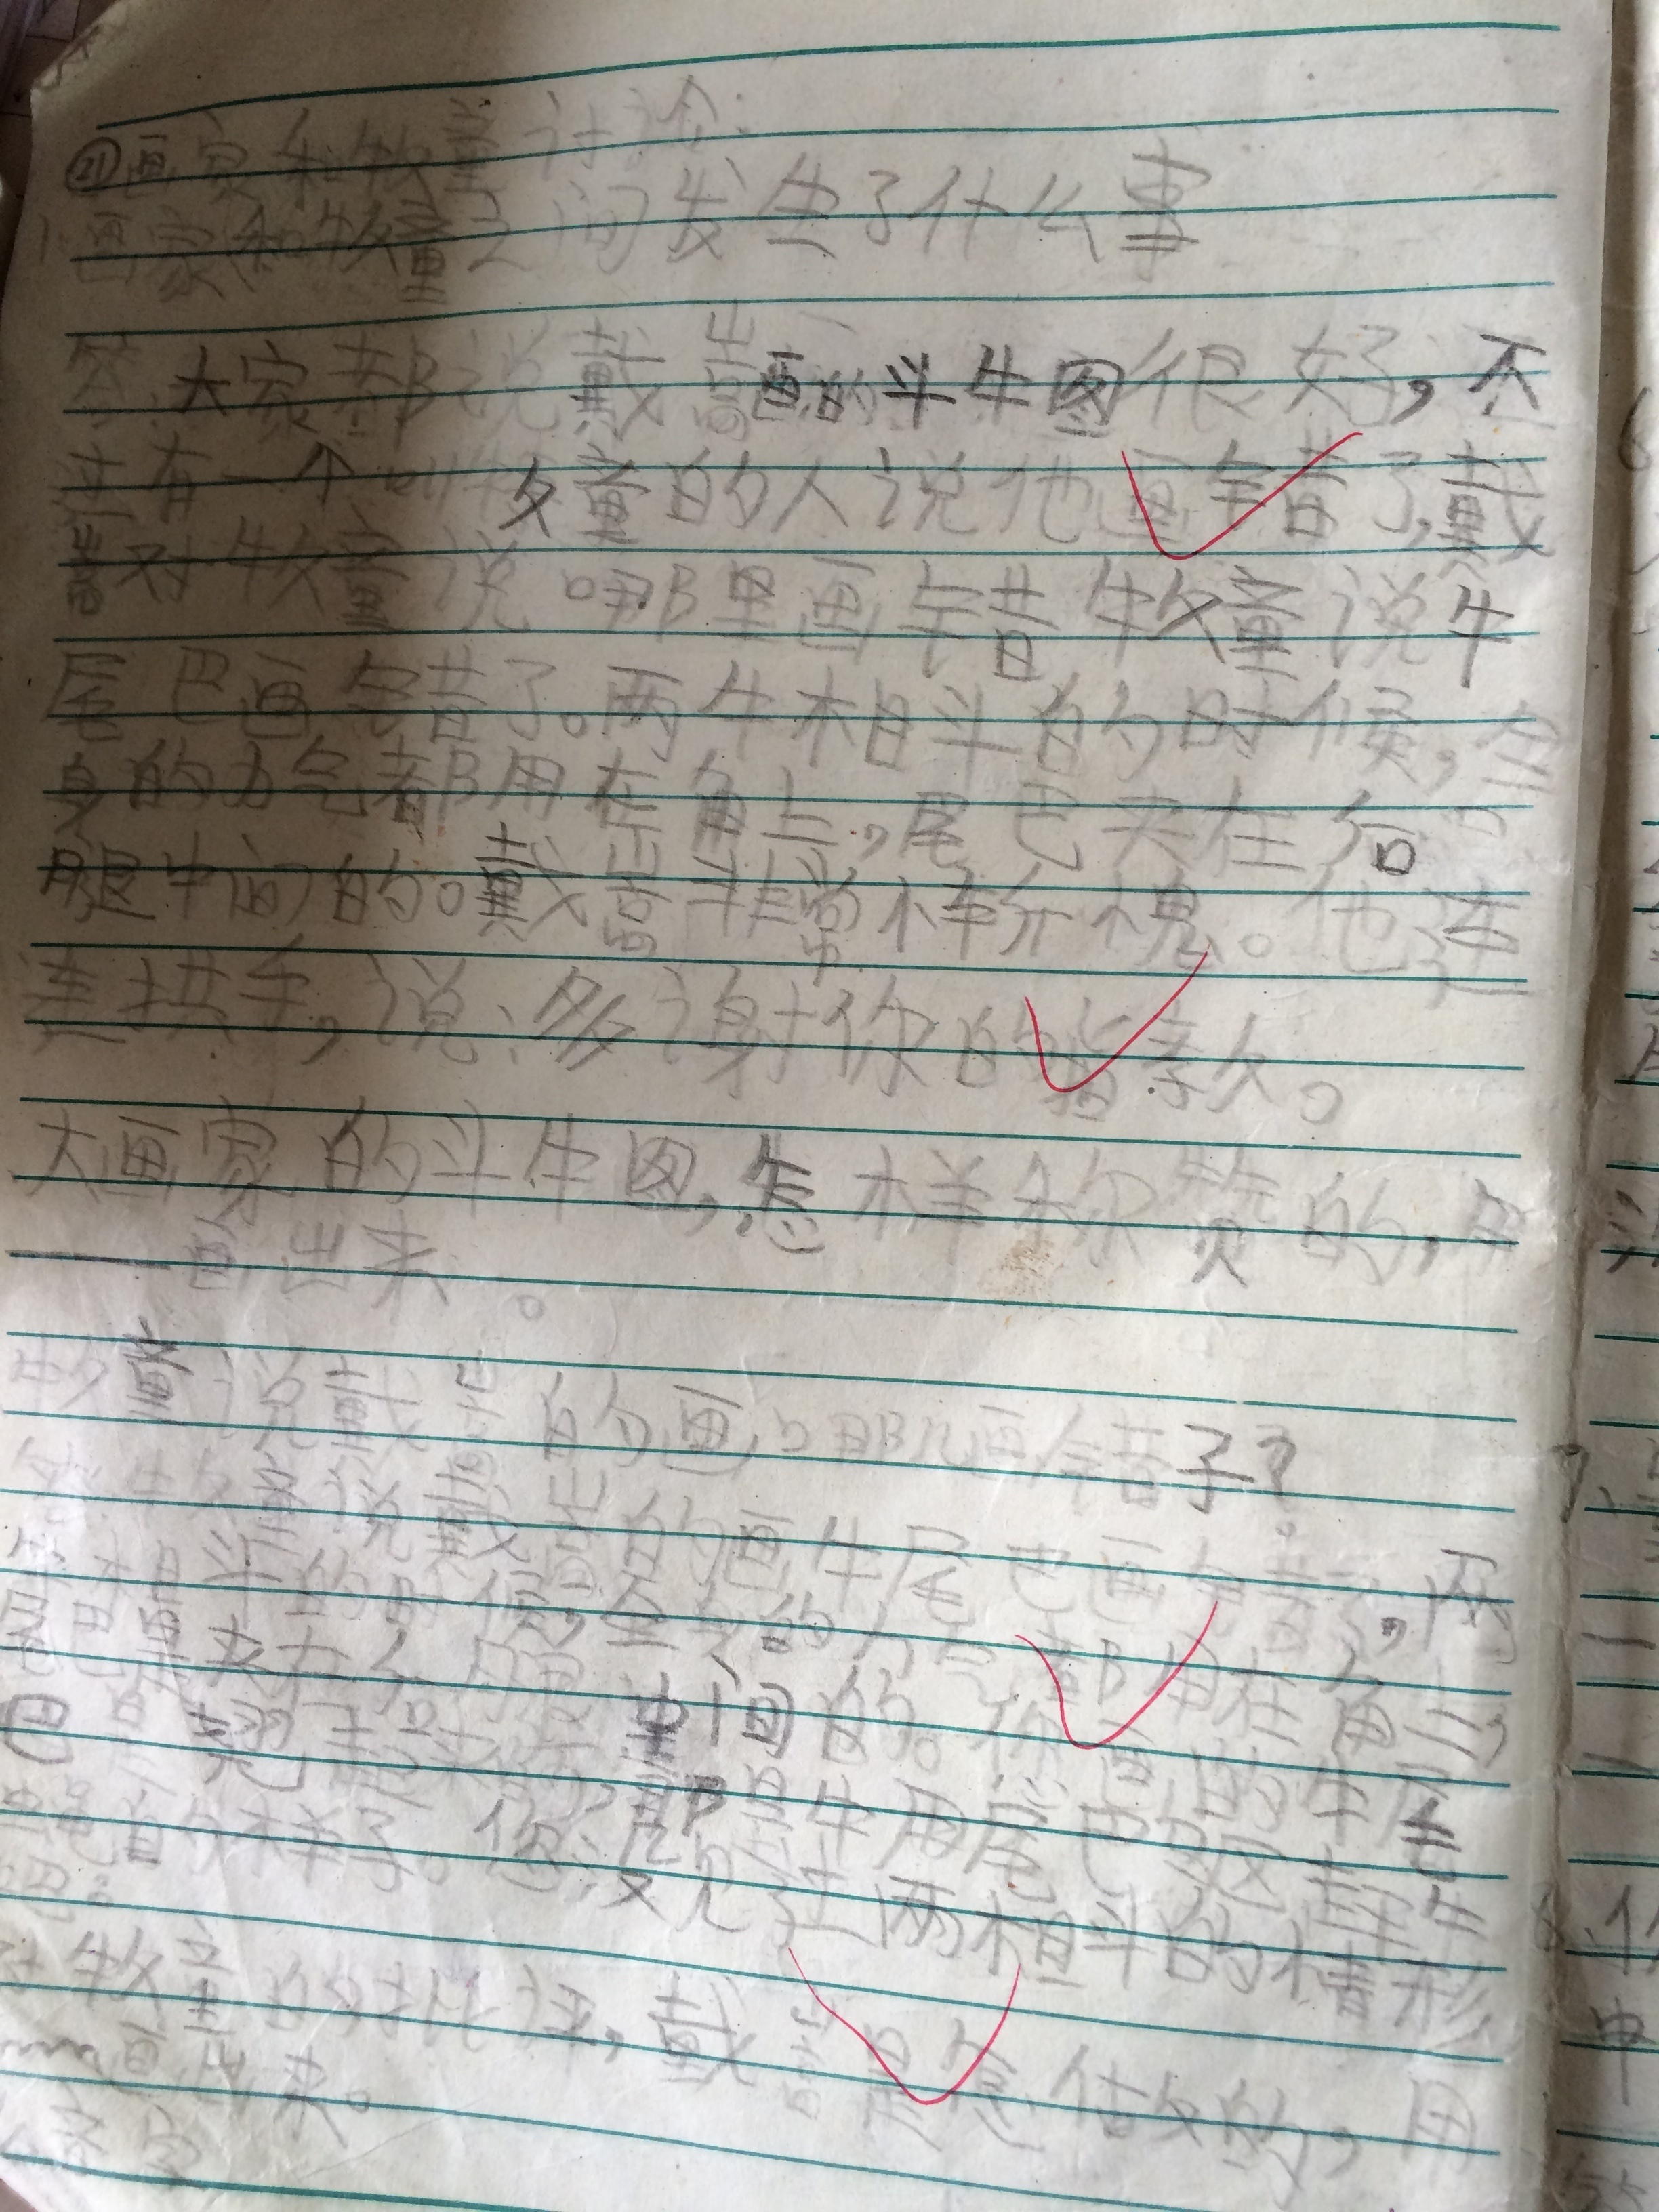 ㉑画家和牧童讨论:
1画家和牧童之间发生了什么事
答大家都说戴嵩画的斗牛图很好,不
过有一个叫牧童的人说他画错了,戴
嵩对牧童说哪里画错牧童说牛
尾巴画错了。两牛相斗的时候,全
身的力气都用在角上,尾巴夹在后
腿中间的。戴嵩非常惭愧。他连
连拱手,说:多谢你的指教。
大画家的斗牛图,怎样称赞的,用
——画出来。
牧童说戴嵩的画,哪儿画错了?
答牧童说戴嵩的画牛尾巴画错了,两
牛相斗的时候,全身的力气都用在角上,
尾巴是夹在后腿中间的。你画的牛尾
巴是翘起来的,那是牛用尾巴驱赶牛
蝇的样子。您没见过两相斗的情形
吧。
牧童的批评,戴嵩是怎么做的,用
画出来。